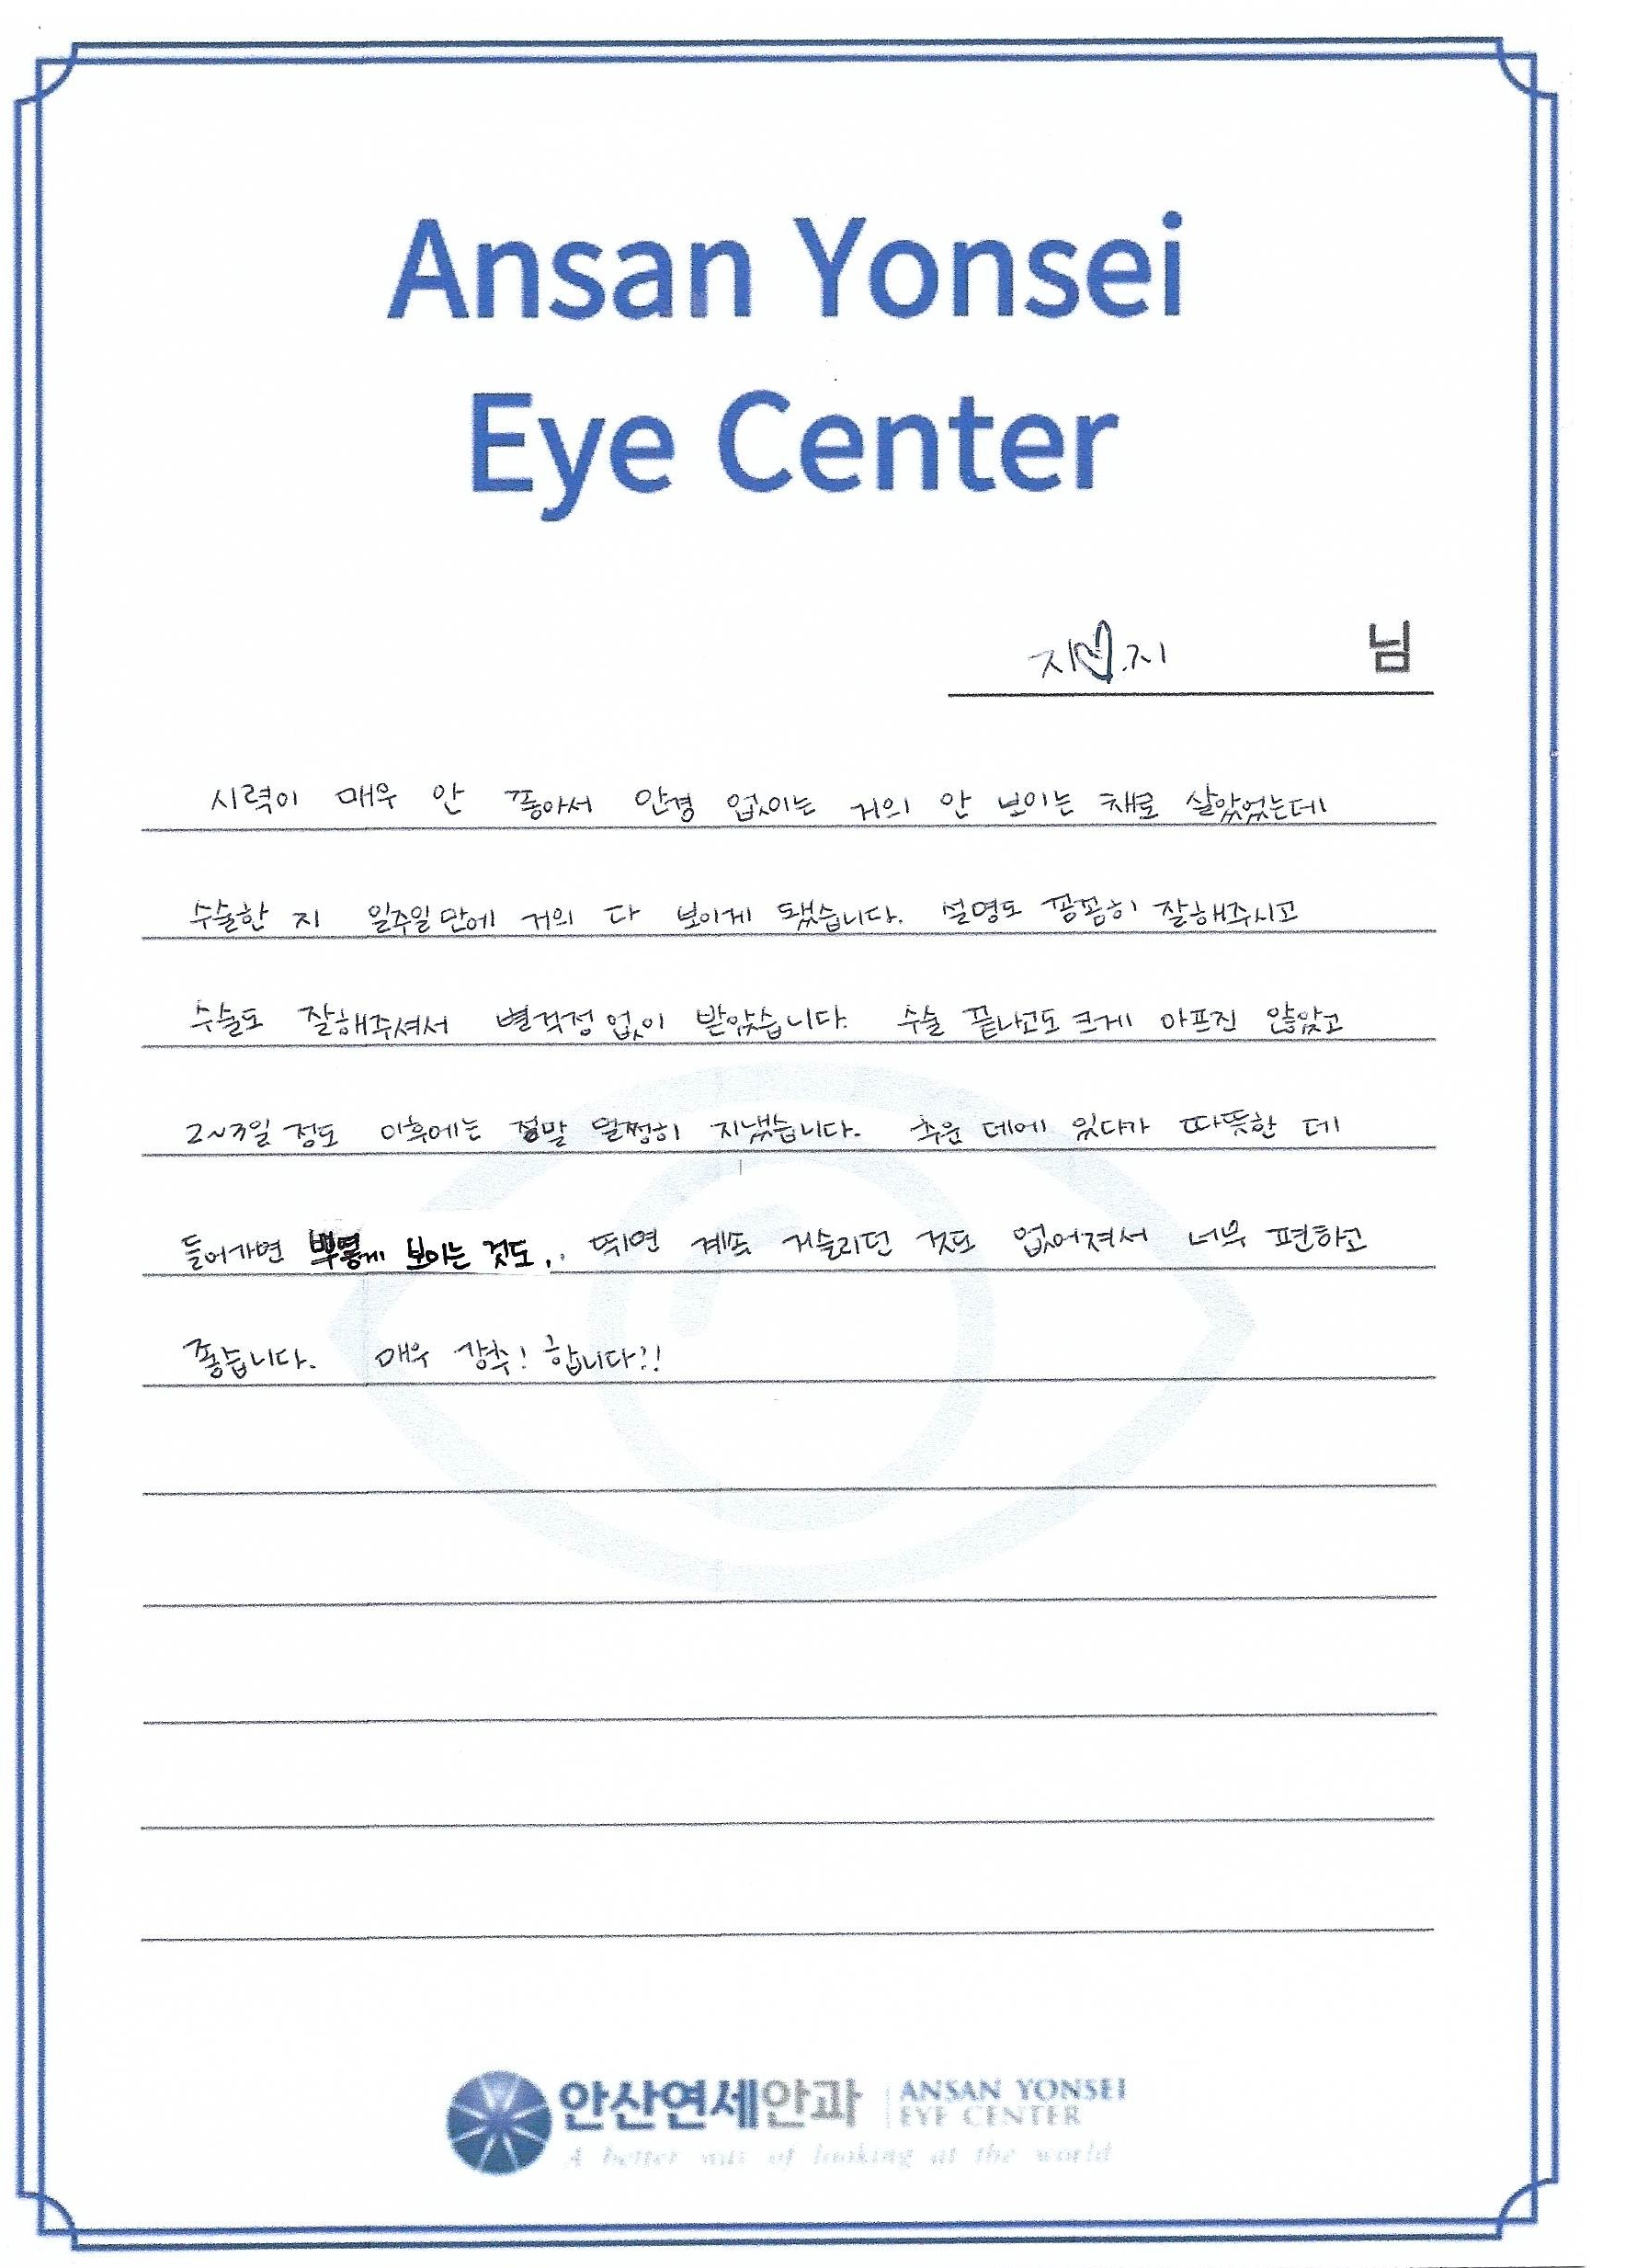 Ansan Yonsei
Eye Center
지♡.지 님
시력이 매우 안 좋아서 안경 없이는 거의 안 보이는 채로 살았었는데
수술한 지 일주일만에 거의 다 보이게 됐습니다. 설명도 꼼꼼히 잘해주시고
수술도 잘해주셔서 별걱정없이 받았습니다. 수술 끝나고도 크게 아프진 않았고
2~3일 정도 이후에는 정말 멀쩡히 지냈습니다. 추운 데에 있다가 따뜻한 데
들어가면 뿌옇게 보이는 것도,. 뛰면 계속 거슬리던 것도 없어져서 너무 편하고
좋습니다. 매우 강추! 합니다!!
안산연세안과 ANSAN YONSEI
EYE CENTER
A better way of looking at the world